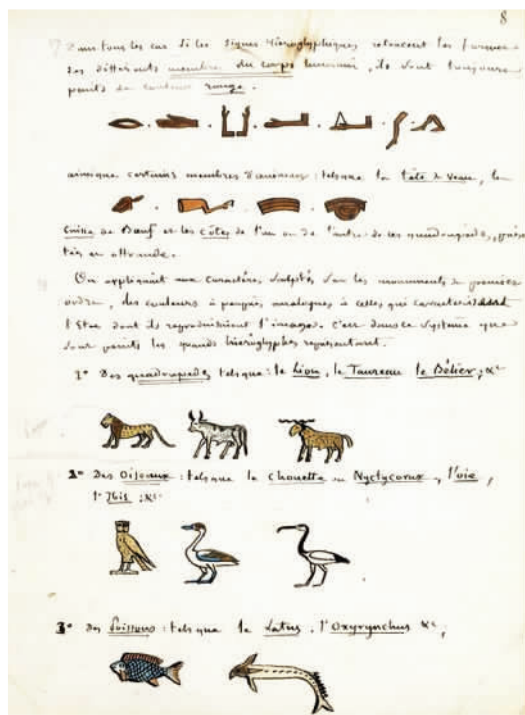 8
Dans tous les cas si les signes hiéroglyphiques retracent les formes
des différents membres du corps humain, ils sont toujours
peints de couleur rouge.
ainsi que certains membres d'animaux : tels que la tête de veau, la
cuisse de Bœuf et les côtes de l'un ou de l'autre de ces quadrupèdes,
tés en offrande.
On appliquait aux caractères sculptés sur les monuments de premier
ordre, des couleurs à peu près analogues à celles qui caractérisaient
l'Etre dont ils reproduisaient l'image. c'est dans ce système que
sont peints les grands hiéroglyphes représentant.
1° Des quadrupèdes tels que : le Lion, le Taureau le Bélier ; &c
2° Des Oiseaux : tels que la chouette ou Nycticorax, l'oie,
l'Ibis ; &c
3° des Poissons : tels que le Latus, l'Oxyrynchus &c ;